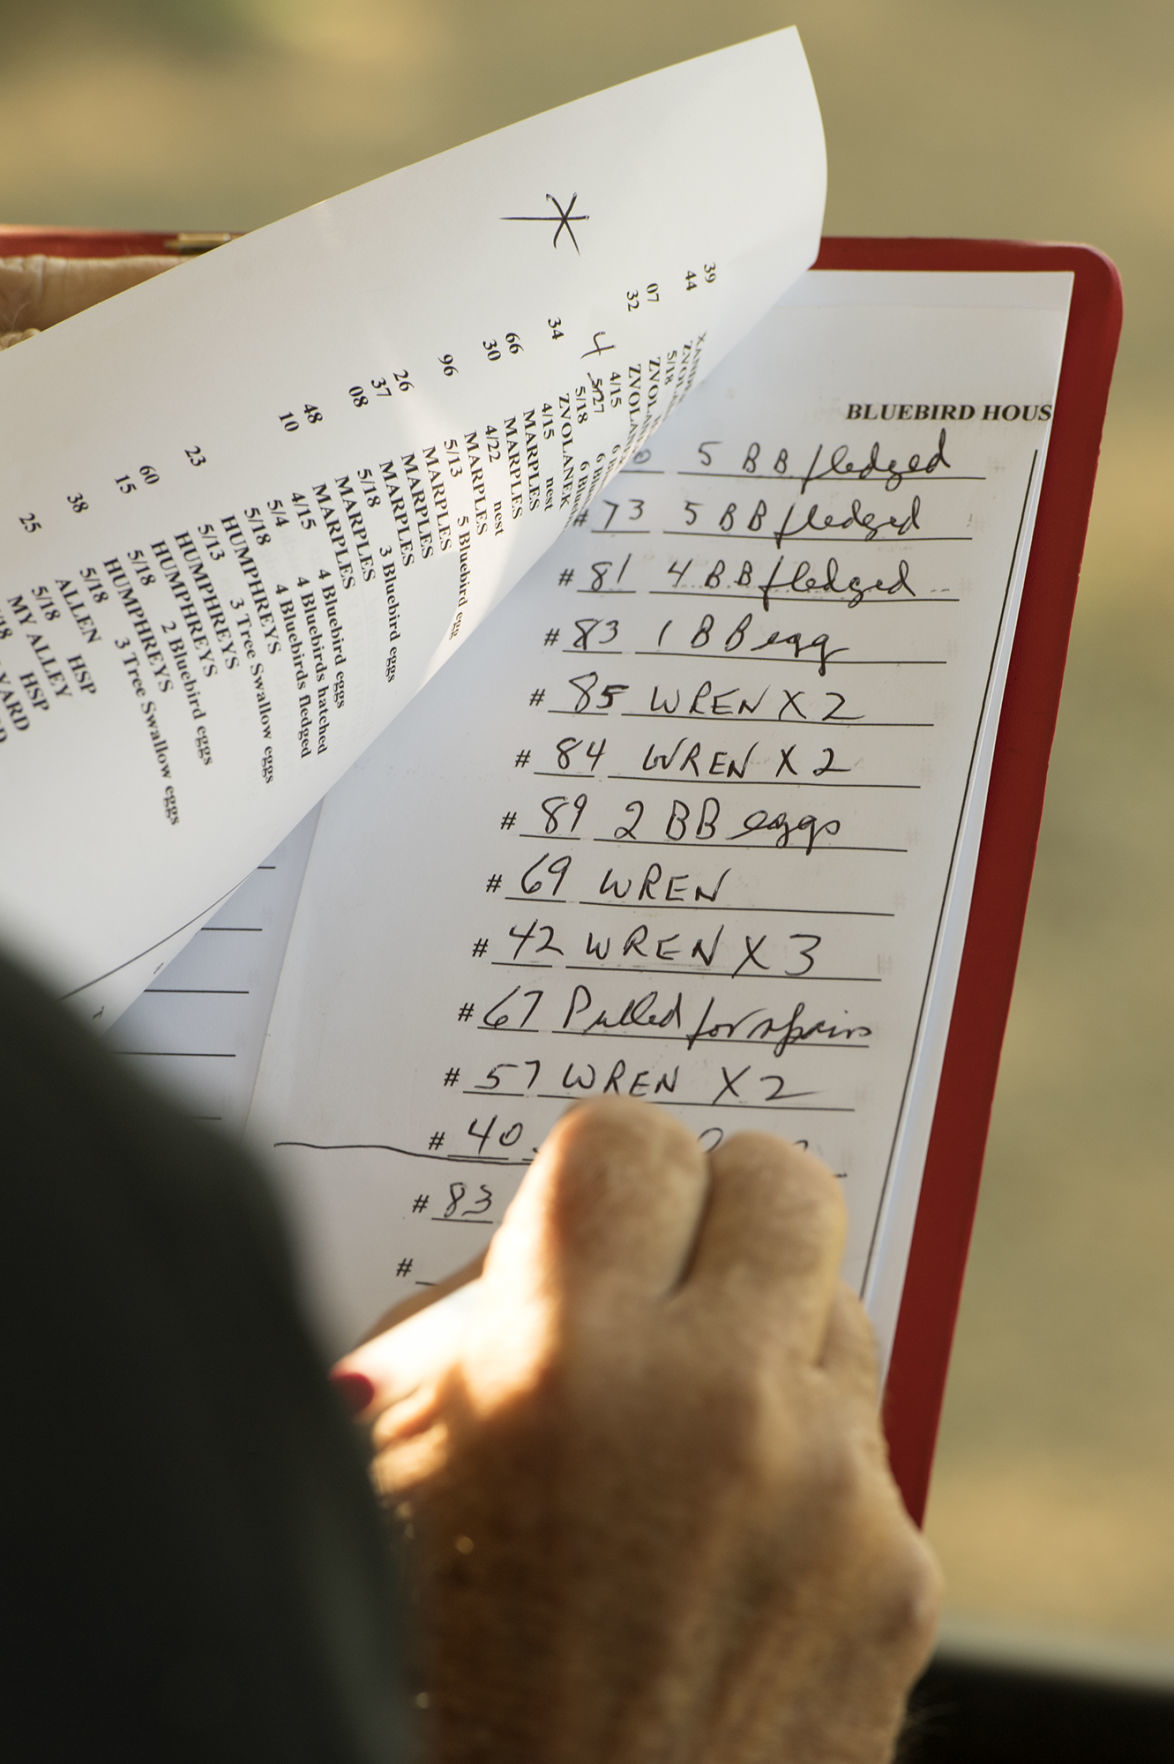 BLUEBIRD HOUS
5 BB fledged
# 73 5 BB fledged
# 81 4 BB fledged
# 83 1 BB egg
# 85 WREN X 2
# 84 WREN X 2
# 89 2 BB eggs
# 69 WREN
# 42 WREN X 3
# 67 Pulled for repairs
# 57 WREN X 2
# 40
# 83
#
39
44
07
32
4
34
66
30
96
26
37
08
48
10
23
60
15
38
25
5/18
4/15
5/27
5/18 6
ZVOLANEK
4/15 nest
MARPLES
MARPLES
4/22 nest
MARPLES
5/13 5 Bluebird egg
MARPLES
MARPLES
MARPLES 3 Bluebird eggs
5/18
MARPLES
MARPLES
4/15 4 Bluebird eggs
5/4 4 Bluebirds hatched
5/18 4 Bluebirds fledged
HUMPHREYS
5/13 3 Tree Swallow eggs
HUMPHREYS
HUMPHREYS
5/18 2 Bluebird eggs
HUMPHREYS
5/18 3 Tree Swallow eggs
ALLEN HSP
5/18
MY ALLEY
HSP
YARD